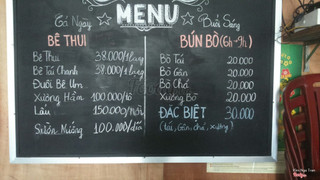 Cả Ngày
MENU
Buổi Sáng
BÊ THUI
Bê Thui 38.000/1lạng
Bê Tái Chanh 38.000/1lạng
Đuôi Bê Um
Xương Hầm 100.000/tô
Lẩu 150.000/nồi
Sườn Nướng 100.000/dĩa
BÚN BÒ (6h→9h)
Bò Tái 20.000
Bò Gân 20.000
Bò Chả 20.000
Xương Bò 20.000
ĐẶC BIỆT 30.000
(tái, Gân, chả, xương)